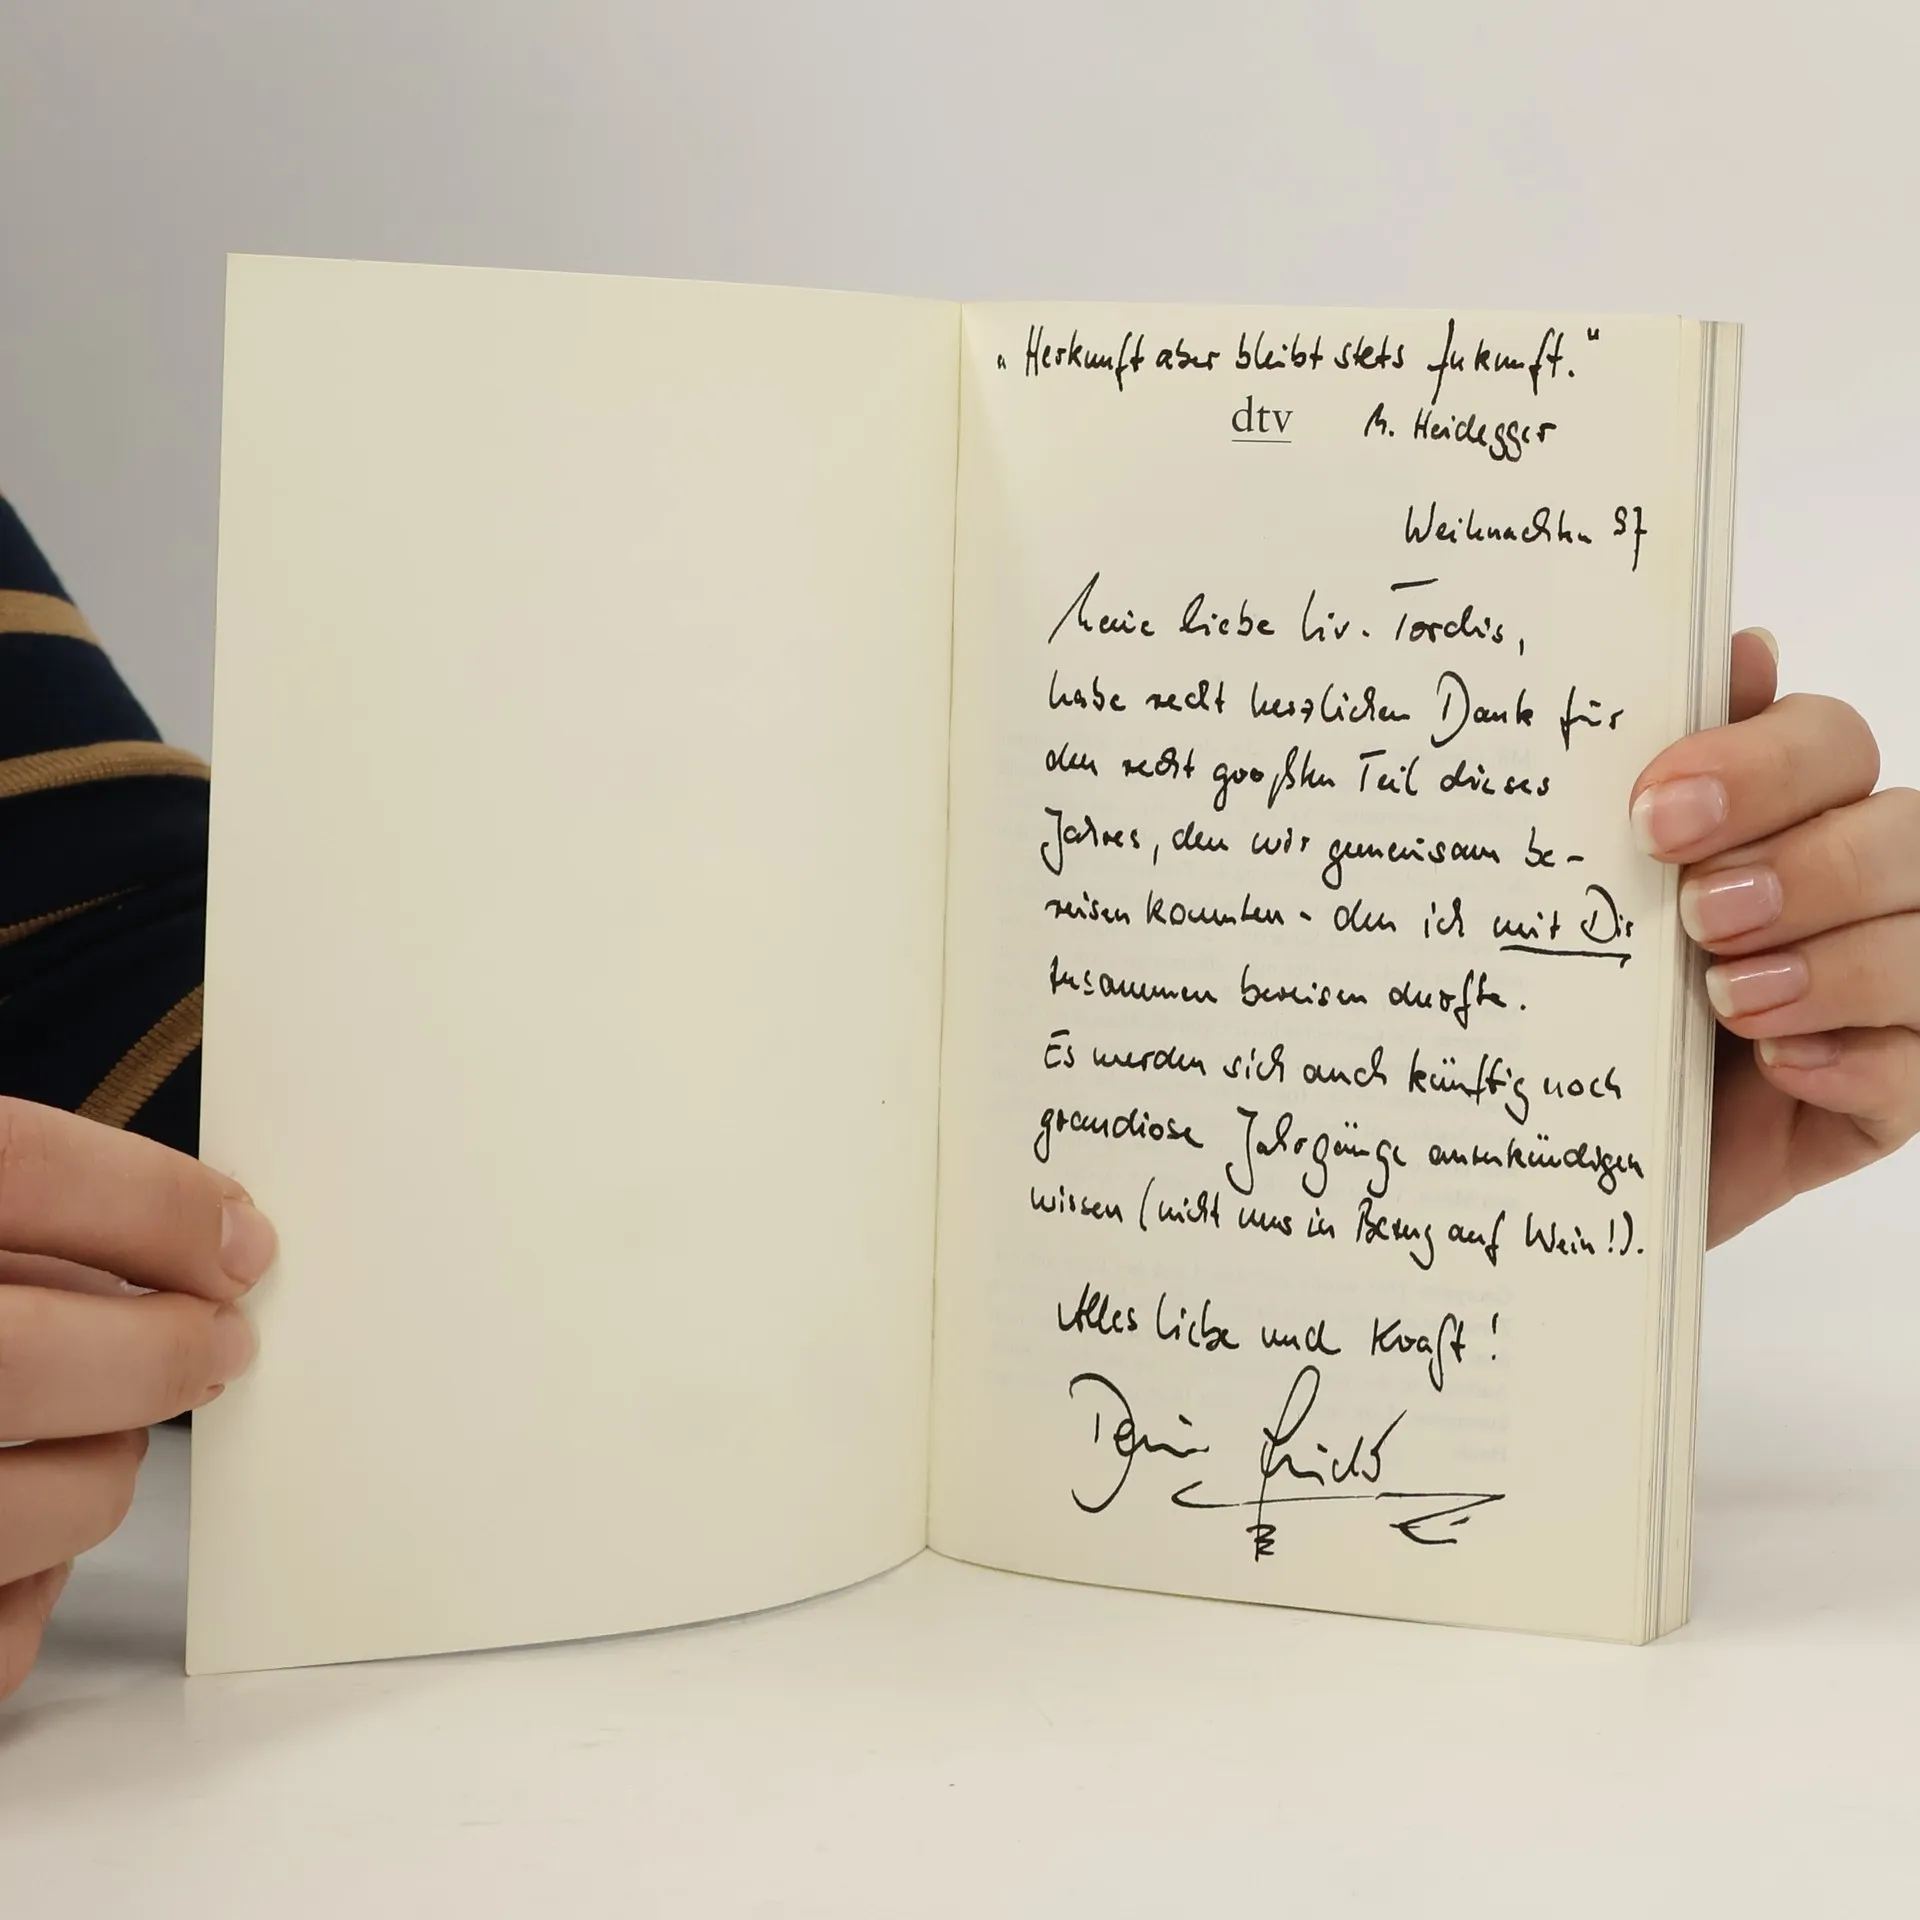 „Herkunft aber bleibt stets Zukunft.“
dtv M. Heidegger
Weihnachten 97
Meine liebe Liv-Tordis,
habe recht herzlichen Dank für
den recht großen Teil dieses
Jahres, den wir gemeinsam be-
reisen konnten - den ich mit Dir
zusammen bereisen durfte.
Es werden sich auch künftig noch
grandiose Jahrgänge anzukündigen
wissen (nicht nur in Bezug auf Wein!).
Alles Liebe und Kraft!